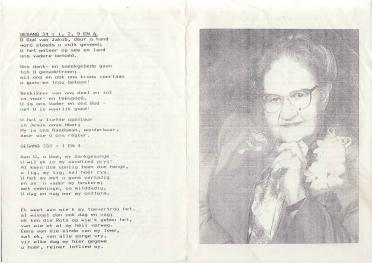 GESANG 54 : 1, 2, 5 EN 6
O God van Jakob, deur u hand
word steeds u volk gevoed;
U het weleer op see en land
ons vaders behoed.
Ons dank- en smeekgebede gaan
tot U genadetroon;
wil ons en ook ons kroos voortaan
u guns en trou betoon!
Beskikker van ons deel en lot
in voor- en teëspoed,
U is ons Vader en ons God -
net U is waarlik goed!
U het u liefde openbaar
in Jesus onse Heer;
Hy is ons Raadsman, wonderbaar,
deur wie U ons regeer.
GESANG 353 : 1 EN 4
Aan U, o God, my dankgesange
U wil ek in my aandlied prys!
Al kwyn die sonlig teen die hange,
u lig, my lig, sal hoër rys.
U het my met u guns versadig
en as 'n vader my beskerm;
met seëninge, so
U dag en nag oor my ontferm.
Ek weet aan wie'k my toevertrou het,
al wissel dan ook dag en nag;
ek ken die Rots op wie'k gebou het,
van wie ek al my heil verwag.
Eens aan die einde van my lewe,
sal ek, van alle sorge vry,
vir elke dag my hier gegewe
u hoër, reiner loflied wy.